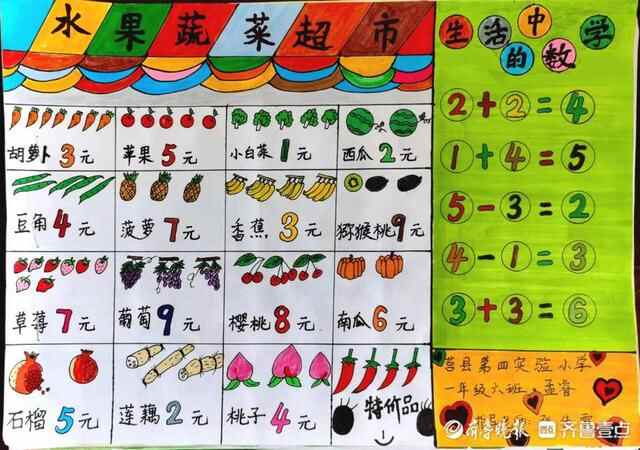 水果蔬菜超市
胡萝卜3元
苹果5元
小白菜1元
西瓜2元
豆角4元
菠萝7元
香蕉3元
猕猴桃9元
草莓7元
葡萄9元
樱桃8元
南瓜6元
石榴5元
莲藕2元
桃子4元
特价品
生活中
的数学
2+2=4
1+4=5
5-3=2
4-1=3
3+3=6
莒县第四实验小学
一年级六班:孟睿
齐鲁晚报 齐鲁壹点